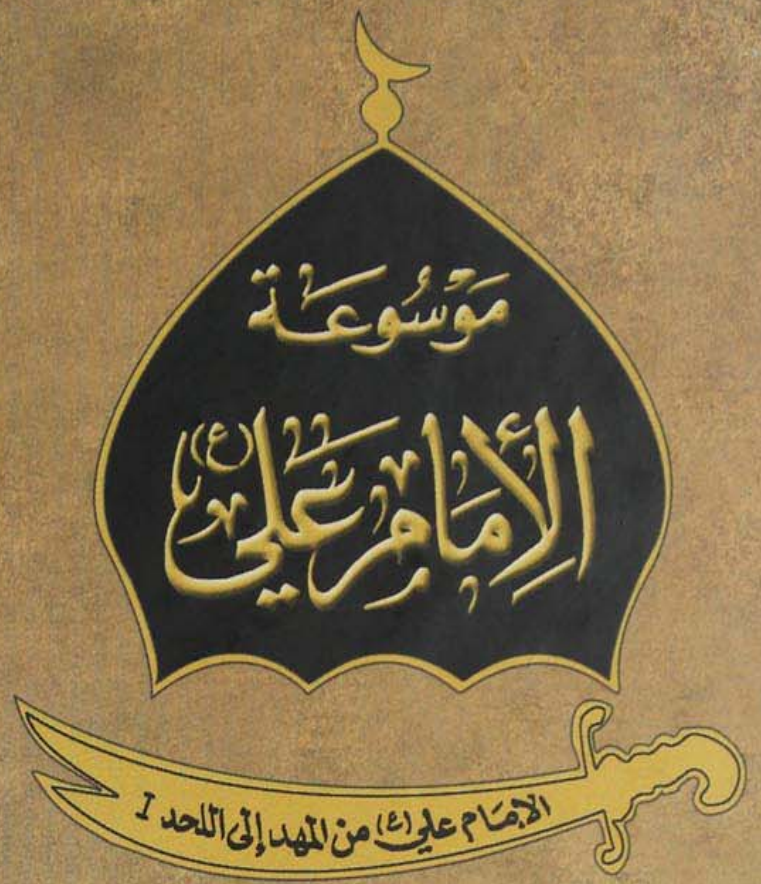 مَوْسُوعَة
الإِمَام عَلي (ع)
الإمَام علي (ع) من المهد إلى اللحد I